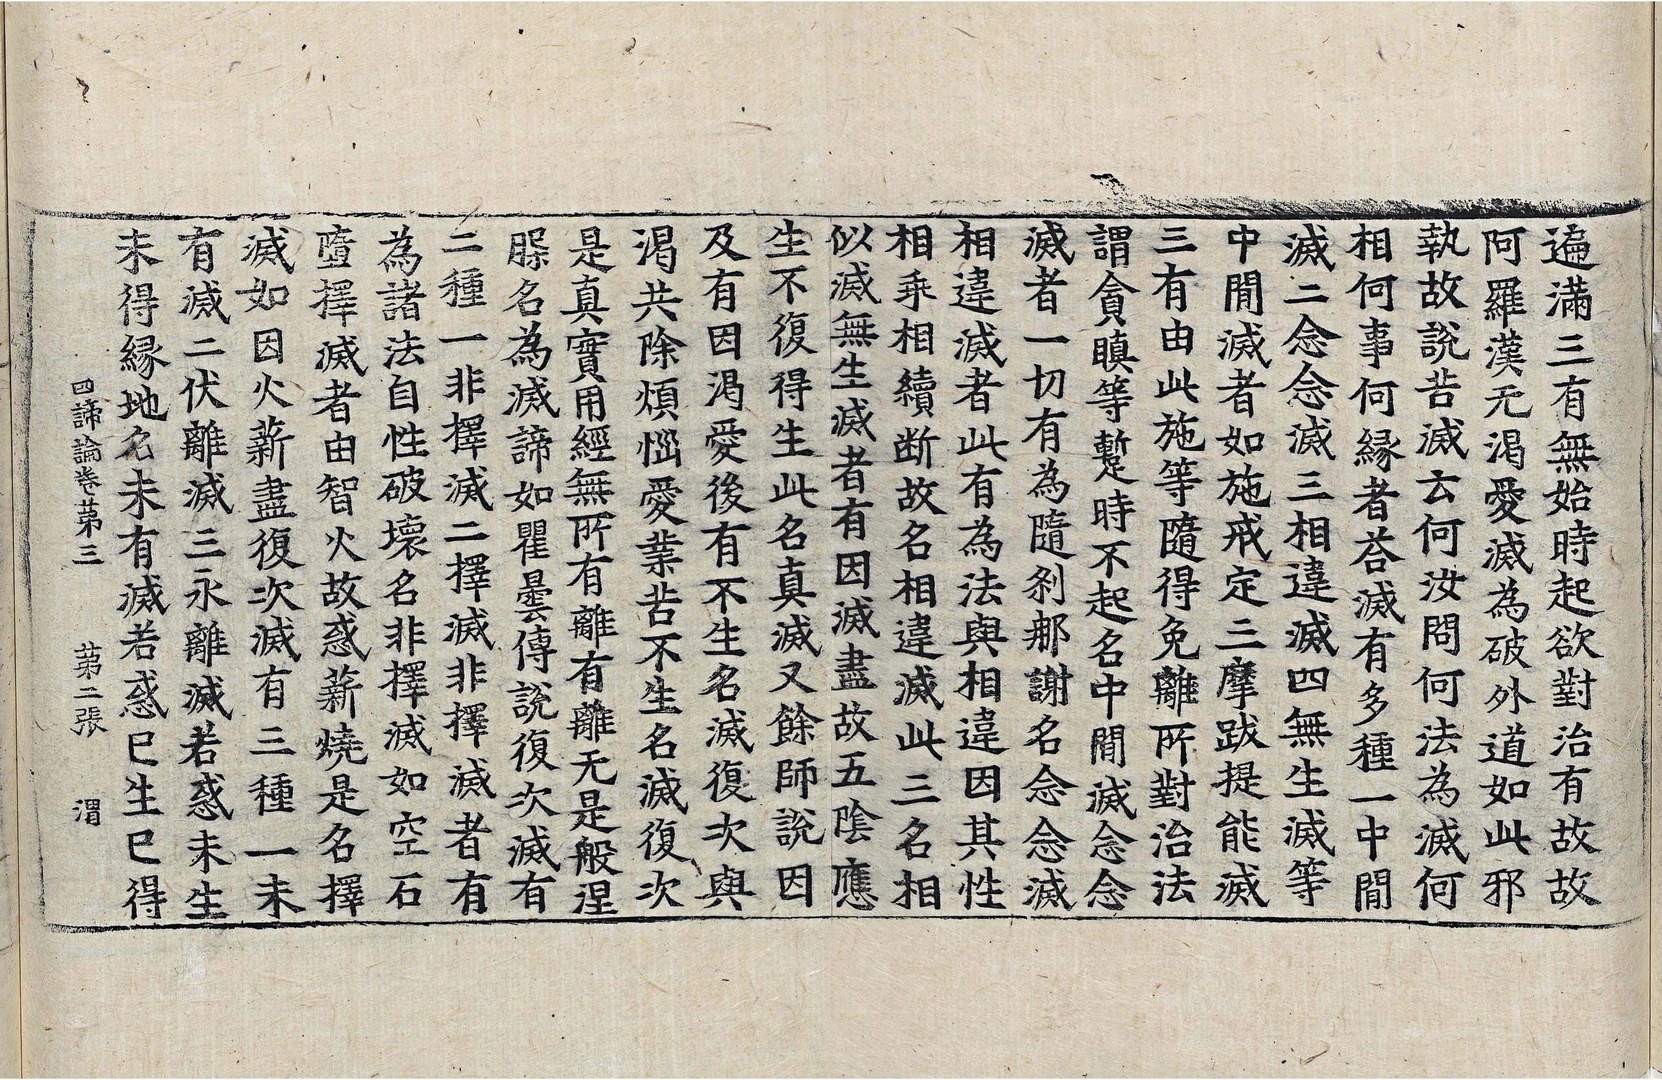 遍滿三有無始時起欲對治有故故
阿羅漢无渴愛滅為破外道如此邪
執故說苦滅去何汝問何法為滅何
相何事何縁者荅滅有多種一中間
滅二念念滅三相違滅四無生滅等
中間滅者如施戒定三摩跋提能滅
三有由此施等隨得免離所對治法
謂貪瞋等蹔時不起名中間滅念念
滅者一切有為隨剎那謝名念念滅
相違滅者此有為法與相違因其性
相乘相續断故名相違滅此三名相
似滅無生滅者有因滅盡故五陰應
生不復得生此名真滅又餘師說因
及有因渴愛後有不生名滅復次與
渴共除煩惱愛業苦不生名滅復次
是真實用經無所有離有離无是般涅
槃名為滅諦如瞿曇傳說復次滅有
二種一非擇滅二擇滅非擇滅者有
為諸法自性破壞名非擇滅如空石
壇擇滅者由智火故惑薪燒是名擇
滅如因火薪盡復次滅有三種一未
有滅二伏離滅三永離滅若惑未生
未得縁地名未有滅若惑已生已得
四諦論卷第三 第二張 渭